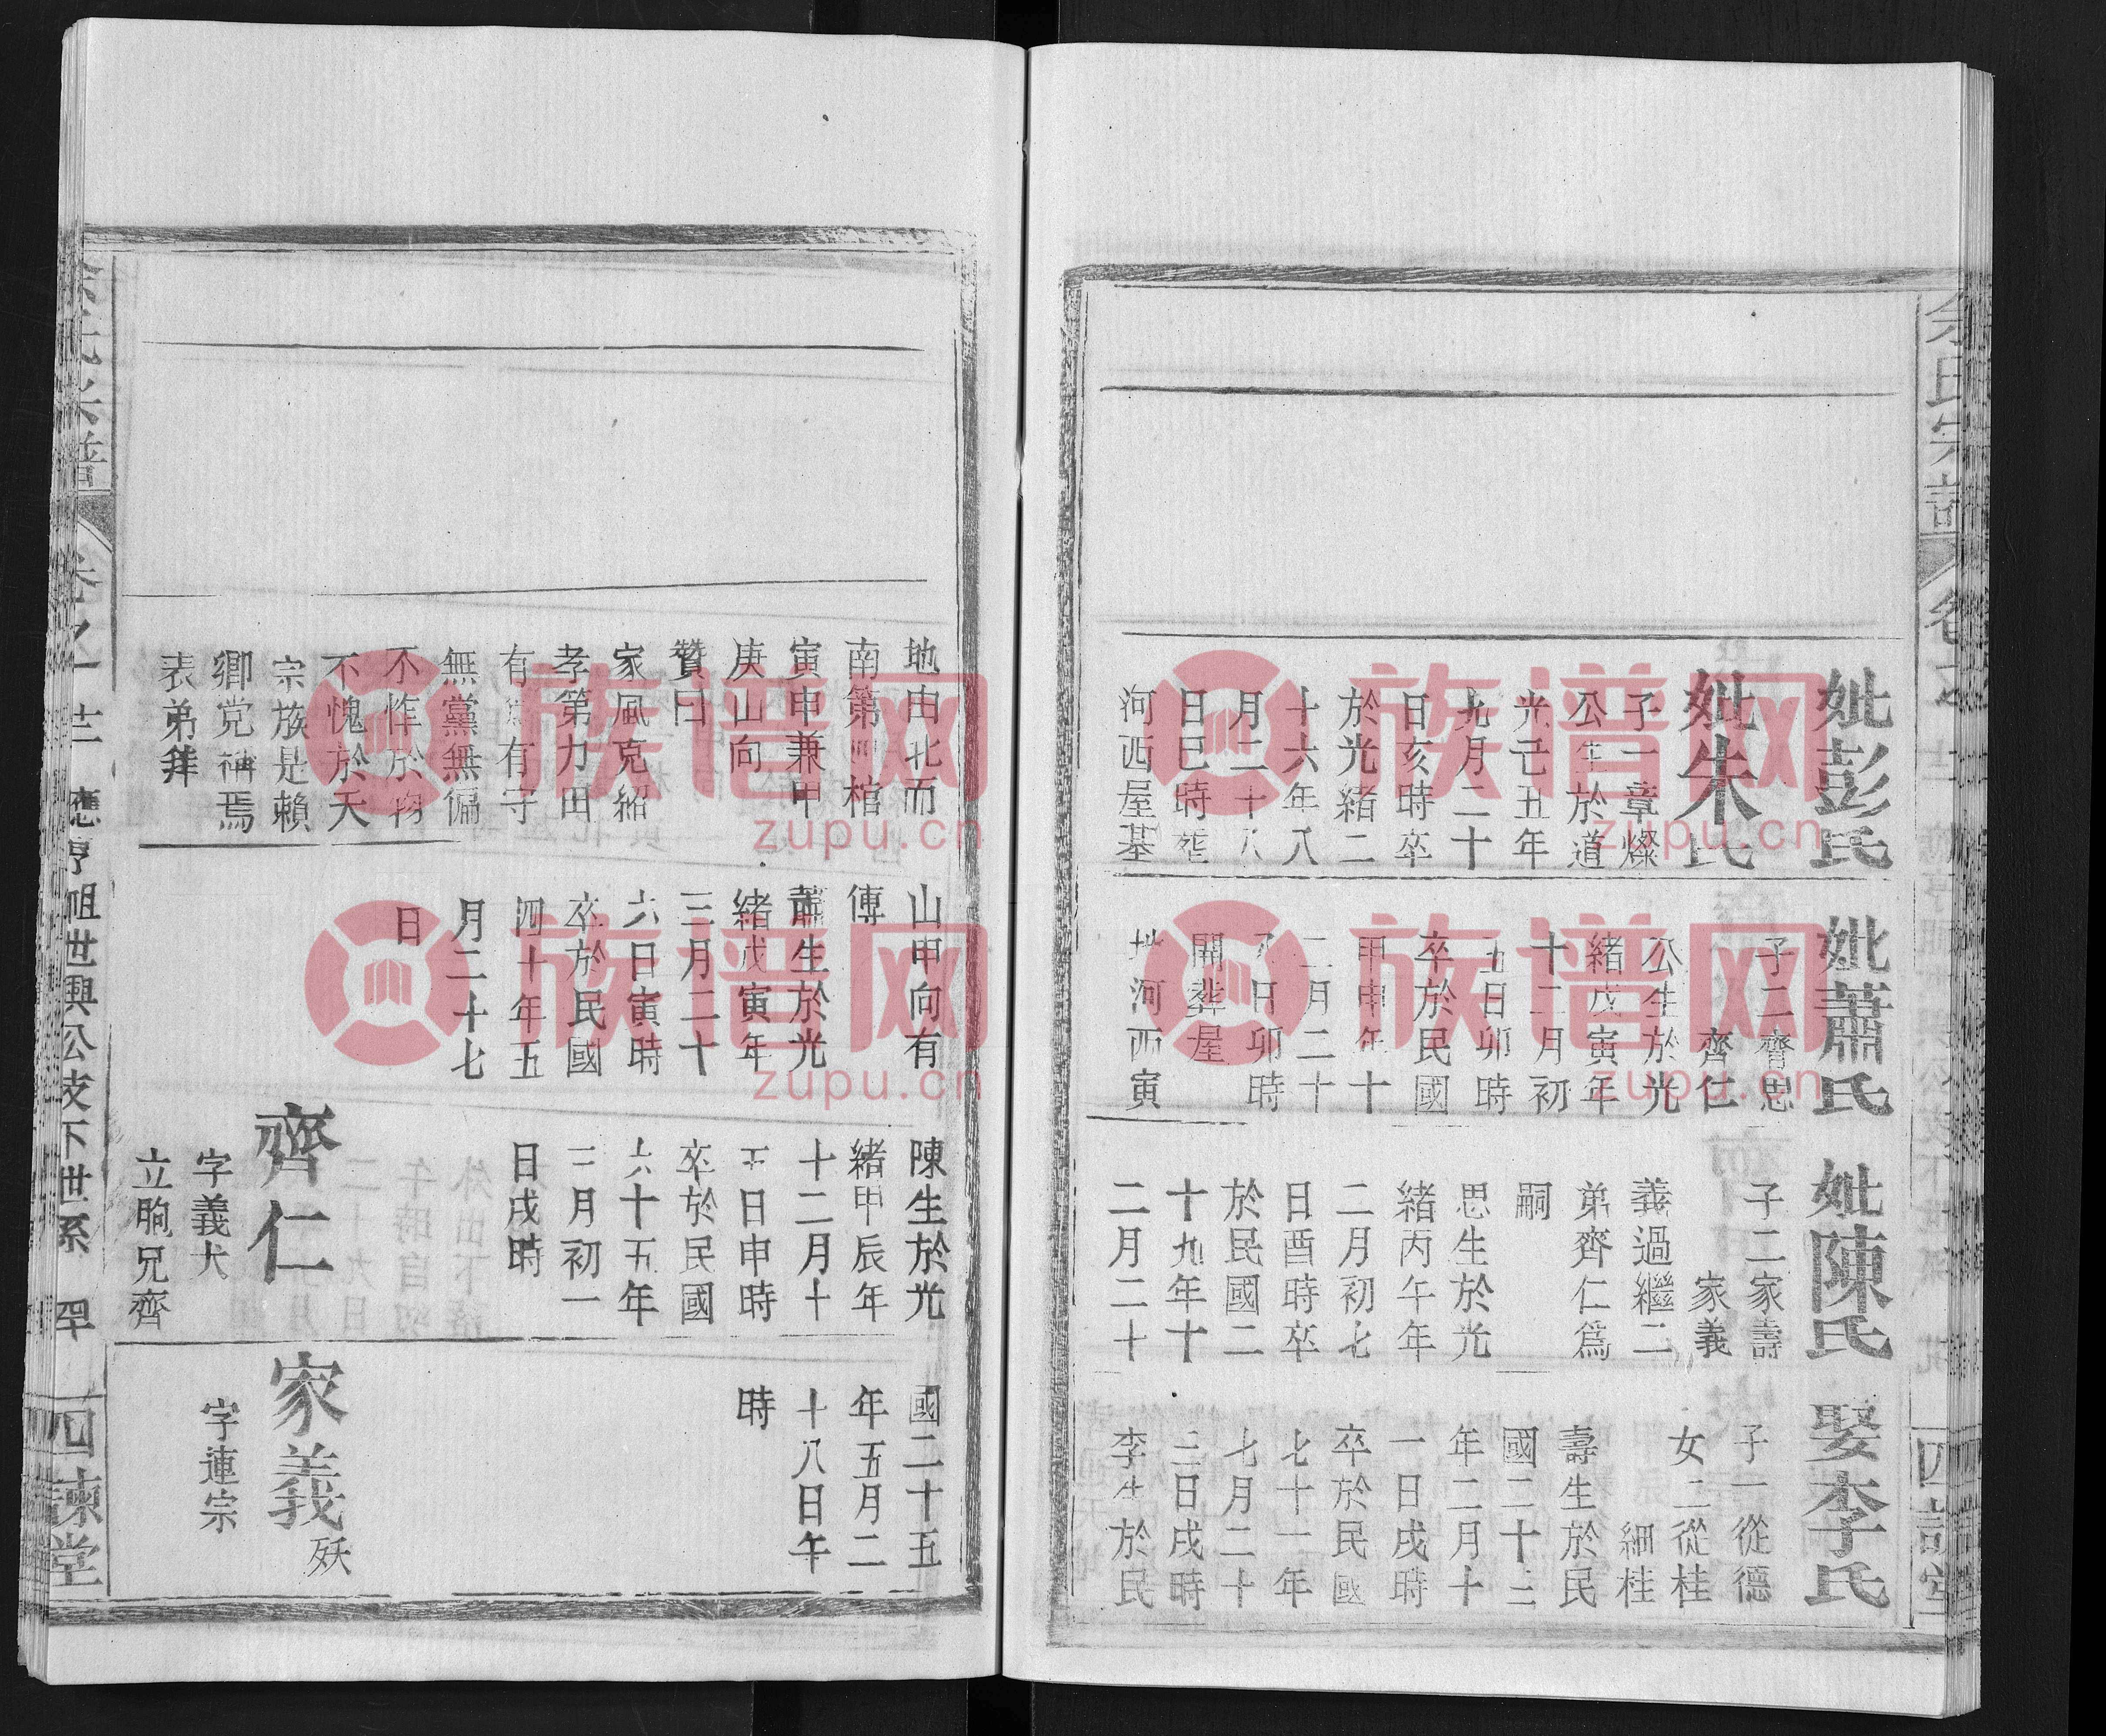 余氏宗譜
妣彭氏
妣朱氏
子一章燦
公生於道
光己丑年
九月二十
日亥時卒
於光緒二
十六年八
月二十八
日巳時塟
河西屋基
地由北而
南第四棺
寅申兼甲
庚山向
贊曰
家風克紹
孝第力田
有為有守
無黨無偏
不怍於物
不愧於天
宗族是賴
卿党補焉
表弟
妣蕭氏
子二齊忠
齊仁
公生於光
緒戊寅年
十二月初
五日卯時
卒於民國
甲申年十
二月二十
日卯時
開葬屋
地河西寅
山甲向有
傳
蕭生於光
緒戊寅年
三月二十
六日寅時
卒於民國
四十年五
月二十七
日
妣陳氏
子二家壽
家義
義過繼二
弟齊仁爲
嗣
思生於光
緒丙午年
二月初七
日酉時卒
於民國二
十九年十
二月二十
陳生於光
緒甲辰年
十二月十
五日申時
卒於民國
六十五年
三月初一
日戌時
齊仁
字義大
立晌兄齊
娶李氏
子一從德
女二從桂
細桂
壽生於民
國二十三
年二月十
一日戌時
卒於民國
七十一年
七月二十
三日戌時
李生於民
國二十五
年五月二
十八日午
時
家義 殀
字連宗
卷之十三 應亨祖世興公支下世系 四諫堂
族谱网
zupu.cn
族谱网
zupu.cn
族谱网
zupu.cn
族谱网
zupu.cn